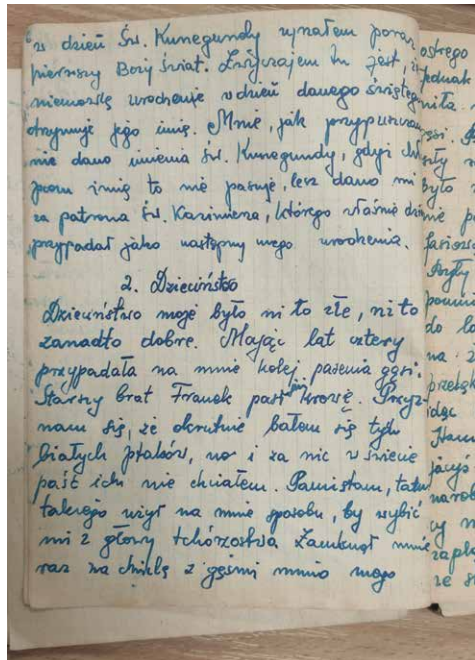 w dzień Św. Kunegundy ujrzałem poraz
pierwszy Boży świat. Zwyczajem tu jest, iż
niemowlę urodzone w dzień danego świętego
otrzymuje jego imię. Mnie, jak przypuszczam
nie dano imienia Św. Kunegundy, gdyż
imię to nie pasuje, lecz dano mi
za patrona Św. Kazimierza, którego właśnie dzień
przypadał jako następny mego urodzenia.
2. Dzieciństwo
Dzieciństwo moje było ni to złe, ni to
zanadto dobre. Mając lat cztery
przypadała na mnie kolej pasenia gęsi.
Starszy brat Franek pasł krowę. Przyz-
nam się, że okrutnie bałem się tych
białych ptaków, no i za nic w świecie
paść ich nie chciałem. Pamiętam, tatu
takiego użył na mnie sposobu, by wybić
mi z głowy tchórzostwa Zamknął mnie
raz na chwilę z gęśmi mimo mego
ostrego
jednak
było
do
na